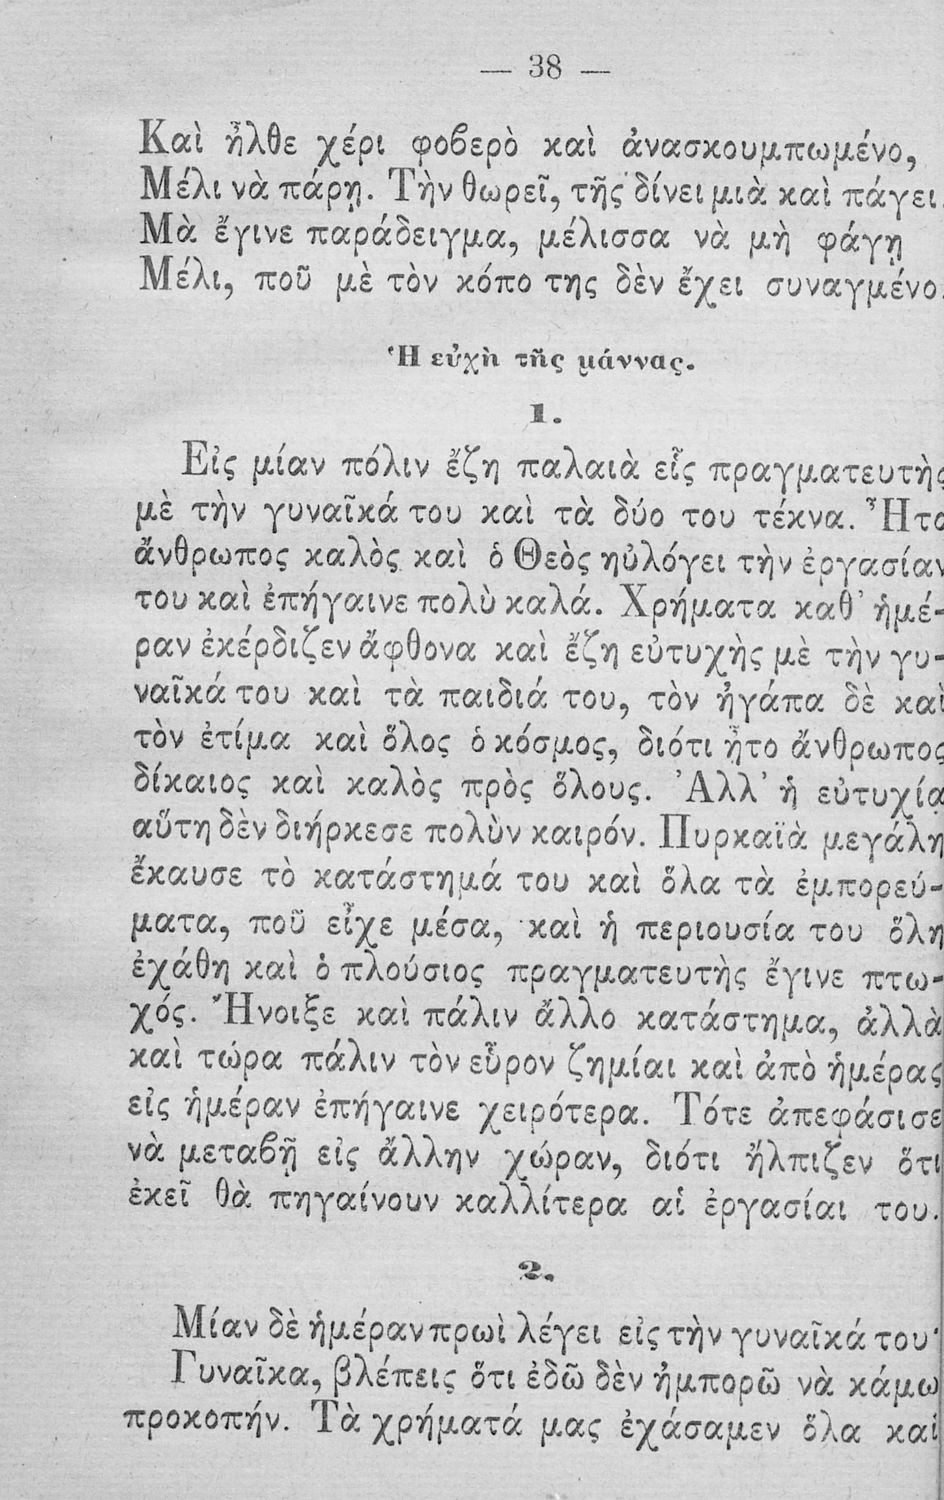 — 38 —
Καὶ ἦλθε χέρι φοβερὸ καὶ ἀνασκουμπωμένο,
Μέλι νὰ πάρῃ. Τὴν θωρεῖ, τῆς δίνει μιὰ καὶ πάγει.
Μὰ ἔγινε παράδειγμα, μέλισσα νὰ μὴ φάγῃ
Μέλι, ποῦ μὲ τὸν κόπο της δὲν ἔχει συναγμένο.
Ἡ εὐχὴ τῆς μάννας.
1.
Εἰς μίαν πόλιν ἔζη παλαιὰ εἷς πραγματευτὴς
μὲ τὴν γυναῖκά του καὶ τὰ δύο του τέκνα. Ἦτο
ἄνθρωπος καλὸς καὶ ὁ Θεὸς ηὐλόγει τὴν ἐργασίαν
του καὶ ἐπήγαινε πολὺ καλά. Χρήματα καθ' ἡμέ-
ραν ἐκέρδιζεν ἄφθονα καὶ ἔζη εὐτυχὴς μὲ τὴν γυ-
ναῖκά του καὶ τὰ παιδιά του, τὸν ἠγάπα δὲ καὶ
τὸν ἐτίμα καὶ ὅλος ὁ κόσμος, διότι ἦτο ἄνθρωπος
δίκαιος καὶ καλὸς πρὸς ὅλους. Ἀλλ' ἡ εὐτυχία
αὕτη δὲν διήρκεσε πολὺν καιρόν. Πυρκαϊὰ μεγάλη
ἔκαυσε τὸ κατάστημά του καὶ ὅλα τὰ ἐμπορεύ-
ματα, ποῦ εἶχε μέσα, καὶ ἡ περιουσία του ὅλη
ἐχάθη καὶ ὁ πλούσιος πραγματευτὴς ἔγινε πτω-
χός. Ἤνοιξε καὶ πάλιν ἄλλο κατάστημα, ἀλλὰ
καὶ τώρα πάλιν τὸν εὗρον ζημίαι καὶ ἀπὸ ἡμέρας
εἰς ἡμέραν ἐπήγαινε χειρότερα. Τότε ἀπεφάσισε
νὰ μεταβῇ εἰς ἄλλην χώραν, διότι ἤλπιζεν ὅτι
ἐκεῖ θὰ πηγαίνουν καλλίτερα αἱ ἐργασίαι του.
2.
Μίαν δὲ ἡμέραν πρωὶ λέγει εἰς τὴν γυναῖκά του·
Γυναῖκα, βλέπεις ὅτι ἐδῶ δὲν ἠμπορῶ νὰ κάμω
προκοπήν. Τὰ χρήματά μας ἐχάσαμεν ὅλα καὶ